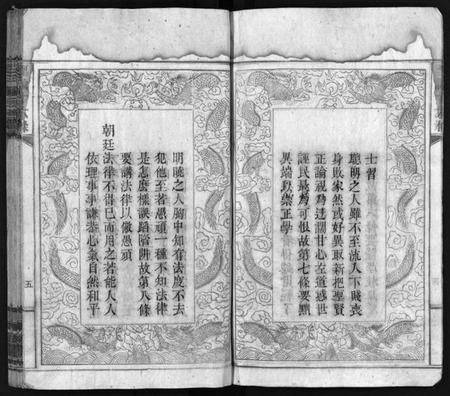 士習
聰明之人雖不至流入下賤喪
身敗家然或好異取新把聖賢
正論視為迂濶甘心左道惑世
誣民最為可恨故第七條要黜
異端以崇正學
明曉之人胸中知有法度不去
犯他至若愚頑一種不知法律
是怎麼樣誤蹈陷阱故第八條
要講法律以儆愚頑
朝廷法律不得已而用之若能人人
依理事事謙恭心氣自然和平
五